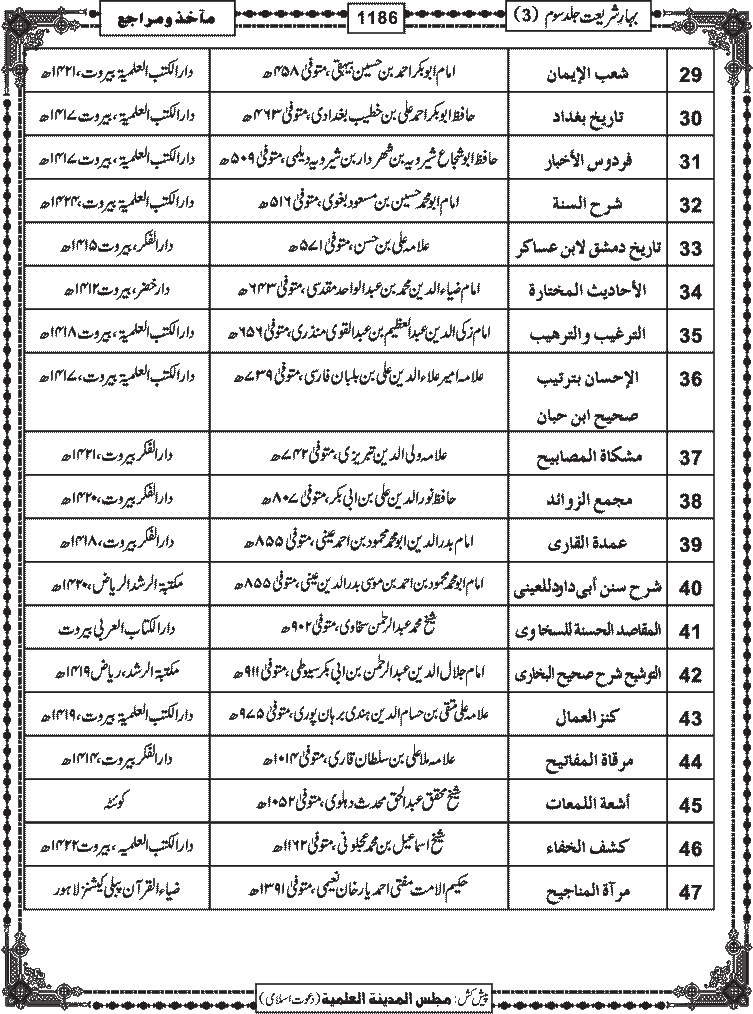 بہارِ شریعت جلد سوم (3)
1186
مآخذ و مراجع
29 شعب الإيمان امام ابو بکر احمد بن حسین بیہقی، متوفیٰ ۴۵۸ھ دار الکتب العلمیۃ بیروت، ۱۴۲۱ھ
30 تاريخ بغداد حافظ ابو بکر احمد علی بن خطیب بغدادی، متوفیٰ ۴۶۳ھ دار الکتب العلمیۃ، بیروت ۱۴۱۷ھ
31 فردوس الأخبار حافظ ابو شجاع شیرویہ بن شہردار بن شیرویہ دیلمی، متوفیٰ ۵۰۹ھ دار الکتب العلمیۃ، بیروت ۱۴۱۷ھ
32 شرح السنة امام ابو محمد حسین بن مسعود بغوی، متوفیٰ ۵۱۶ھ دار الکتب العلمیۃ بیروت، ۱۴۲۴ھ
33 تاريخ دمشق لابن عساكر علامہ علی بن حسن، متوفیٰ ۵۷۱ھ دار الفکر، بیروت ۱۴۱۵ھ
34 الأحاديث المختارة امام ضیاء الدین محمد بن عبد الواحد مقدسی، متوفیٰ ۶۴۳ھ دار خضر، بیروت ۱۴۱۲ھ
35 الترغيب والترهيب امام زکی الدین عبد العظیم بن عبد القوی منذری، متوفیٰ ۶۵۶ھ دار الکتب العلمیۃ، بیروت ۱۴۱۸ھ
36 الإحسان بترتيب علامہ امیر علاء الدین علی بن بلبان فارسی، متوفیٰ ۷۳۹ھ دار الکتب العلمیۃ بیروت، ۱۴۱۷ھ
صحيح ابن حبان
37 مشكاة المصابيح علامہ ولی الدین تبریزی، متوفیٰ ۷۴۲ھ دار الفکر بیروت، ۱۴۲۱ھ
38 مجمع الزوائد حافظ نور الدین علی بن ابی بکر، متوفیٰ ۸۰۷ھ دار الفکر بیروت، ۱۴۲۰ھ
39 عمدة القارى امام بدر الدین ابو محمد محمود بن احمد عینی، متوفیٰ ۸۵۵ھ دار الفکر بیروت، ۱۴۱۸ھ
40 شرح سنن أبى داود للعينى امام ابو محمد محمود بن احمد بن موسیٰ بدر الدین عینی، متوفیٰ ۸۵۵ھ مکتبۃ الرشد الریاض، ۱۴۲۰ھ
41 المقاصد الحسنة للسخاوى شیخ محمد عبد الرحمٰن سخاوی، متوفیٰ ۹۰۲ھ دار الکتاب العربی بیروت
42 التوشيح شرح صحيح البخارى امام جلال الدین عبد الرحمٰن بن ابی بکر سیوطی، متوفیٰ ۹۱۱ھ مکتبۃ الرشد، ریاض ۱۴۱۹ھ
43 كنز العمال علامہ علی متقی بن حسام الدین ہندی برہان پوری، متوفیٰ ۹۷۵ھ دار الکتب العلمیۃ بیروت، ۱۴۱۹ھ
44 مرقاة المفاتيح علامہ ملا علی بن سلطان قاری، متوفیٰ ۱۰۱۴ھ دار الفکر بیروت، ۱۴۱۴ھ
45 أشعة اللمعات شیخ محقق عبد الحق محدث دہلوی، متوفیٰ ۱۰۵۲ھ کوئٹہ
46 كشف الخفاء شیخ اسماعیل بن محمد عجلونی، متوفیٰ ۱۱۶۲ھ دار الکتب العلمیہ، بیروت ۱۴۲۲ھ
47 مرآة المناجيح حکیم الامت مفتی احمد یار خان نعیمی، متوفیٰ ۱۳۹۱ھ ضیاء القرآن پبلی کیشنز لاہور
پیش کش: مجلس المدينة العلمية (دعوت اسلامی)